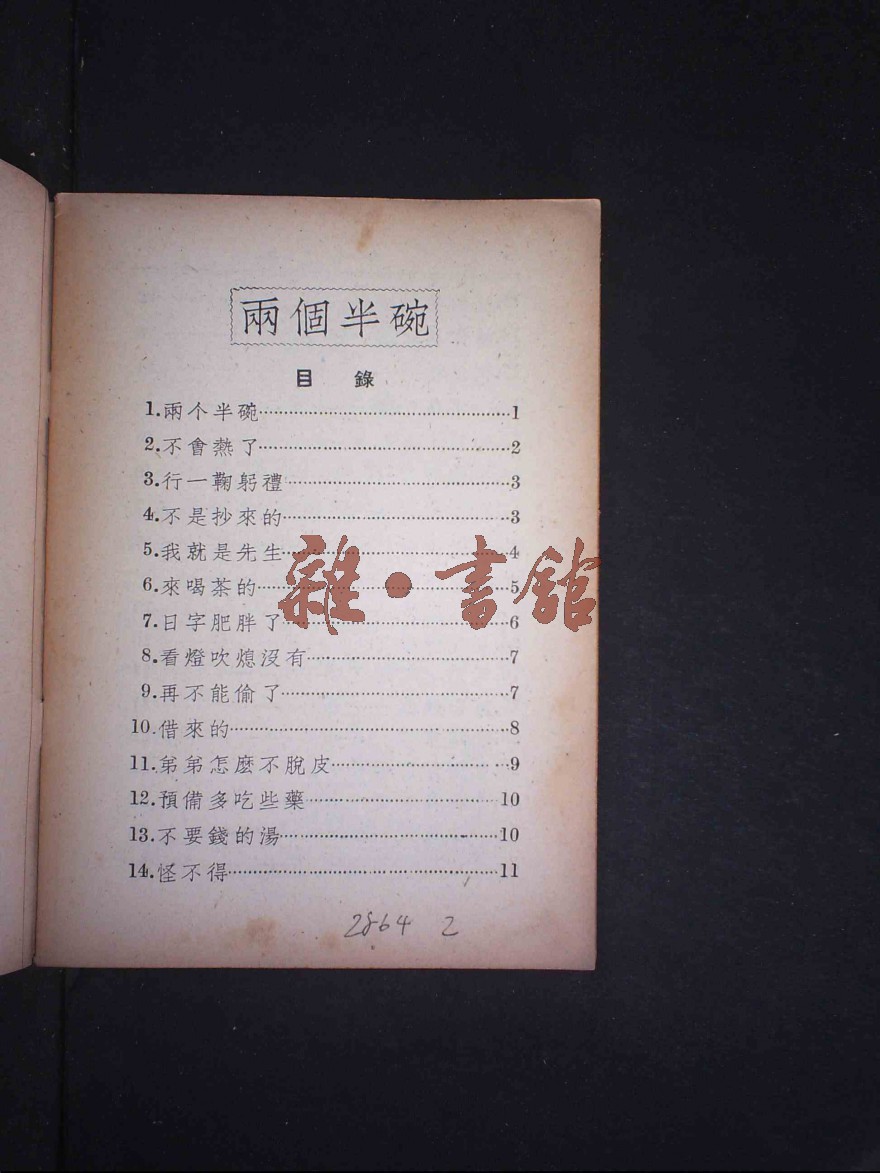 兩個半碗
目錄
1.兩个半碗……1
2.不會熱了……2
3.行一鞠躬禮……3
4.不是抄來的……3
5.我就是先生……4
6.來喝茶的……5
7.日字肥胖了……6
8.看燈吹熄沒有……7
9.再不能偷了……7
10.借來的……8
11.弟弟怎麽不脫皮……9
12.預備多吃些藥……10
13.不要錢的湯……10
14.怪不得……11
2864 2
雜·書館